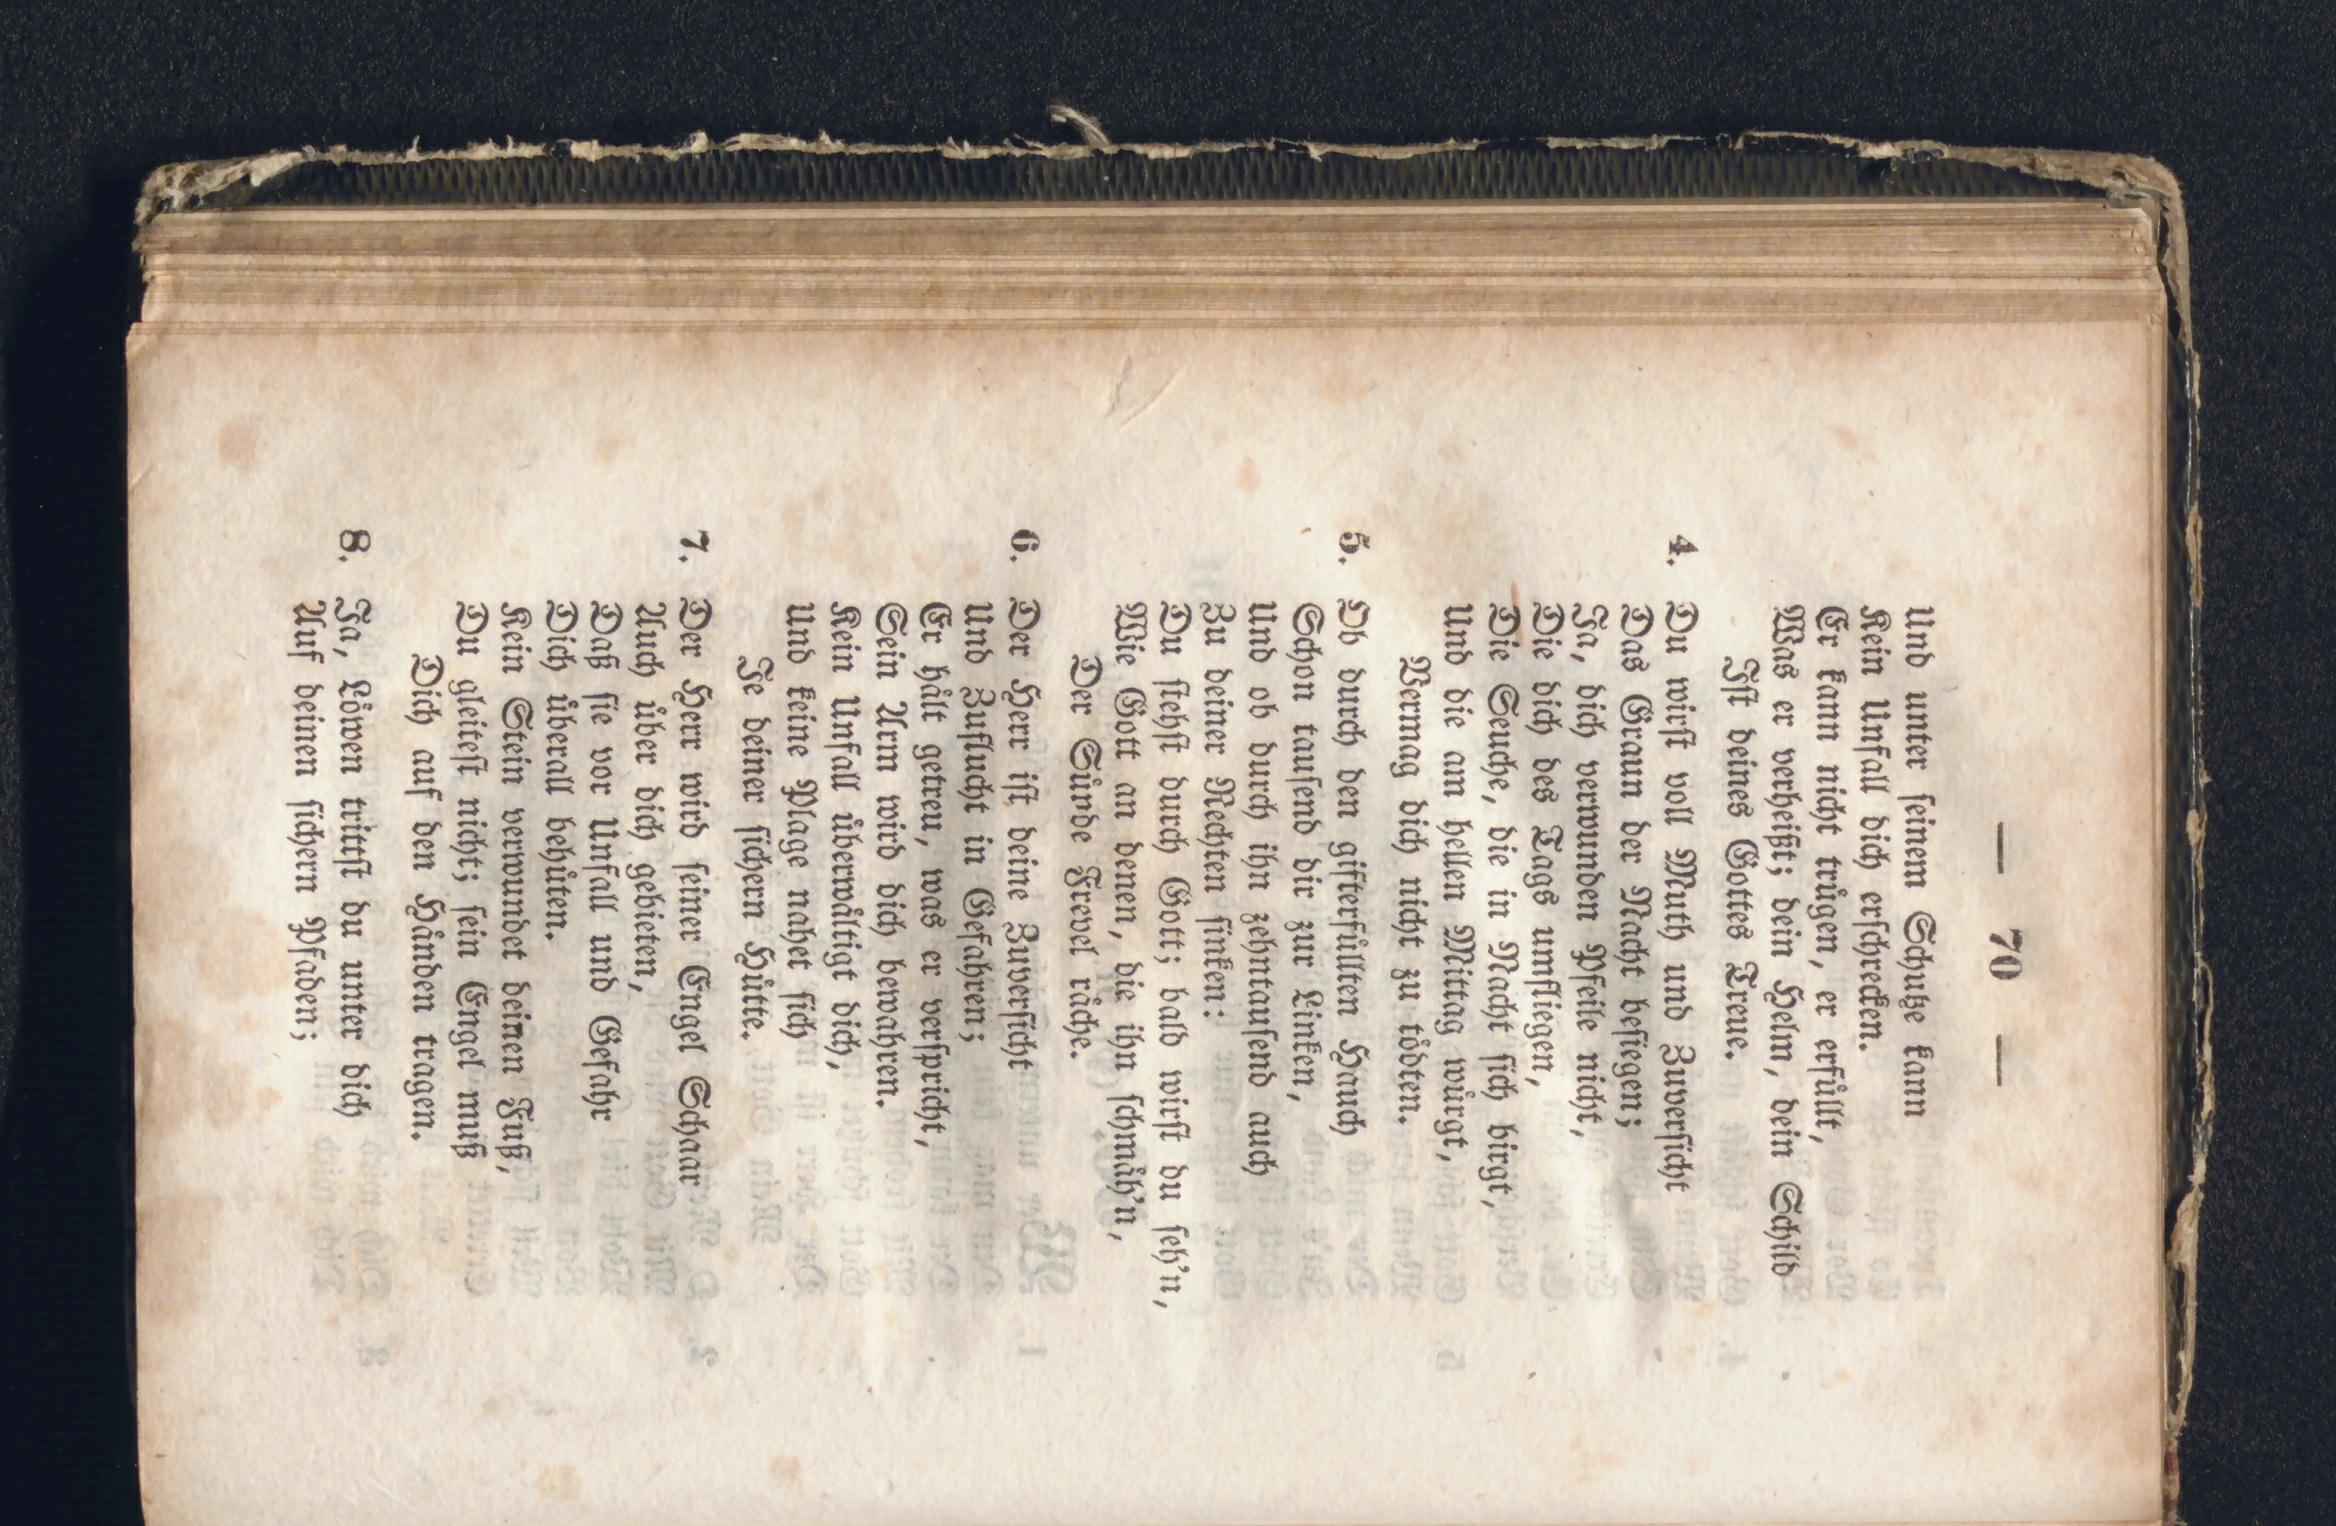 — 70 —
Und unter seinem Schutze kann
Kein Unfall dich erschrecken.
Er kann nicht trügen, er erfüllt,
Was er verheißt; dein Helm, dein Schild
Ist deines Gottes Treue.
4. Du wirst voll Muth und Zuversicht
Das Graun der Nacht besiegen;
Ja, dich verwunden Pfeile nicht,
Die dich des Tags umfliegen,
Die Seuche, die in Nacht sich birgt,
Und die am hellen Mittag würgt,
Vermag dich nicht zu tödten.
5. Ob durch den gifterfüllten Hauch
Schon tausend dir zur Linken,
Und ob durch ihn zehntausend auch
Zu deiner Rechten sinken:
Du stehst durch Gott; bald wirst du seh'n,
Wie Gott an denen, die ihn schmäh'n,
Der Sünde Frevel räche.
6. Der Herr ist deine Zuversicht
Und Zuflucht in Gefahren;
Er hält getreu, was er verspricht,
Sein Arm wird dich bewahren.
Kein Unfall überwältigt dich,
Und keine Plage nahet sich
Je deiner sichern Hütte.
7. Der Herr wird seiner Engel Schaar
Auch über dich gebieten,
Daß sie vor Unfall und Gefahr
Dich überall behüten.
Kein Stein verwundet deinen Fuß,
Du gleitest nicht; sein Engel muß
Dich auf den Händen tragen.
8. Ja, Löwen trittst du unter dich
Auf deinen sichern Pfaden;